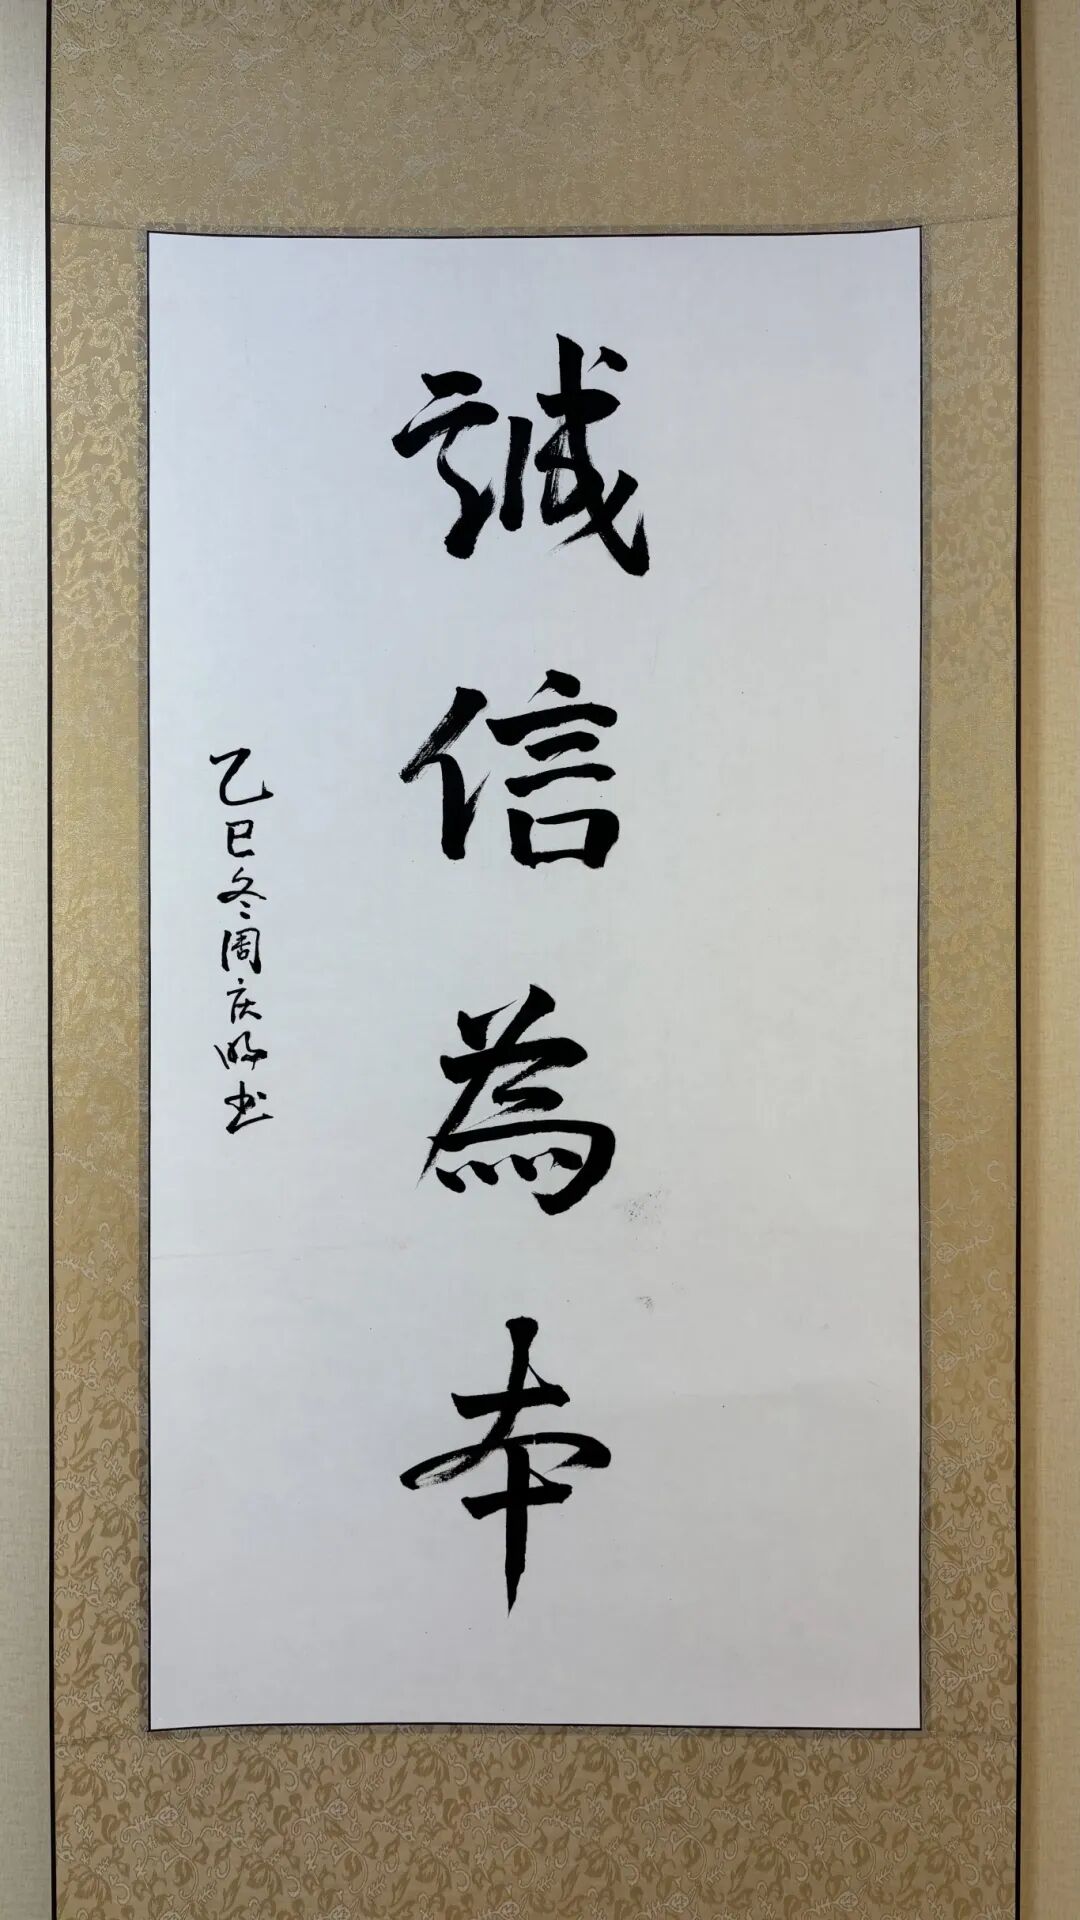 誠信為本
乙巳冬周庆明书